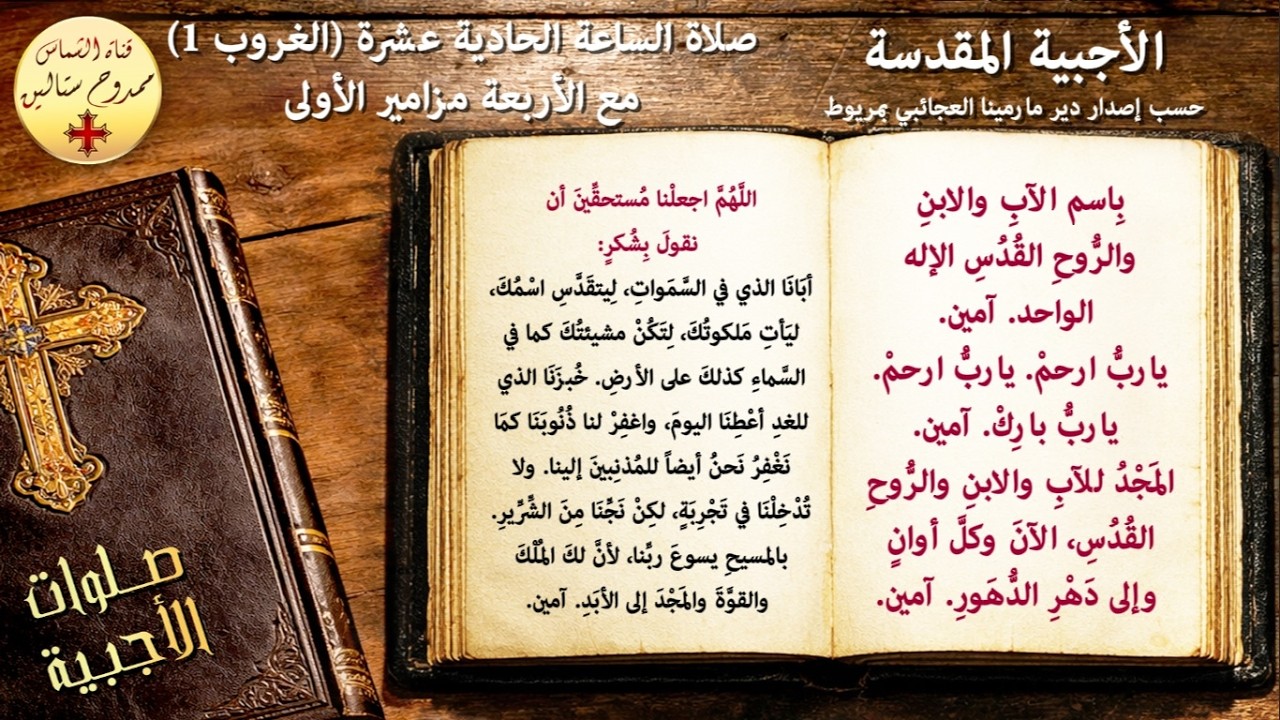 الأجبية المقدسة
حسب إصدار دير مارمينا العجائبي بمريوط
صلاة الساعة الحادية عشرة (الغروب 1)
مع الأربعة مزامير الأولى
قناة الشماس
ممدوح ستالين
بِاسم الآبِ والابنِ
والرُّوحِ القُدُسِ الإله
الواحد. آمين.
ياربُّ ارحمْ. ياربُّ ارحمْ.
ياربُّ بارِكْ. آمين.
المَجْدُ للآبِ والابنِ والرُّوحِ
القُدُسِ، الآنَ وكلَّ أوانٍ
وإلى دَهْرِ الدُّهَورِ. آمين.
اللَّهُمَّ اجعلْنا مُستحقِّينَ أن
نقولَ بِشُكرٍ:
أبَانَا الذي في السَّمَواتِ، لِيتقَدَّسِ اسْمُكَ،
ليَأتِ مَلكوتُكَ، لِتَكُنْ مشيئتُكَ كما في
السَّماءِ كذلكَ على الأرضِ. خُبزَنَا الذي
للغدِ أعْطِنَا اليومَ، واغفِرْ لنا ذُنُوبَنَا كمَا
نَغْفِرُ نَحنُ أيضاً للمُذنِبينَ إلينا. ولا
تُدْخِلْنَا في تَجْرِبَةٍ، لكِنْ نَجِّنَا مِنَ الشِّرِّيرِ.
بالمسيحِ يسوعَ ربِّنا، لأنَّ لكَ المُلْكَ
والقوَّةَ والمَجْدَ إلى الأبَدِ. آمين.
صلوات
الأجبية